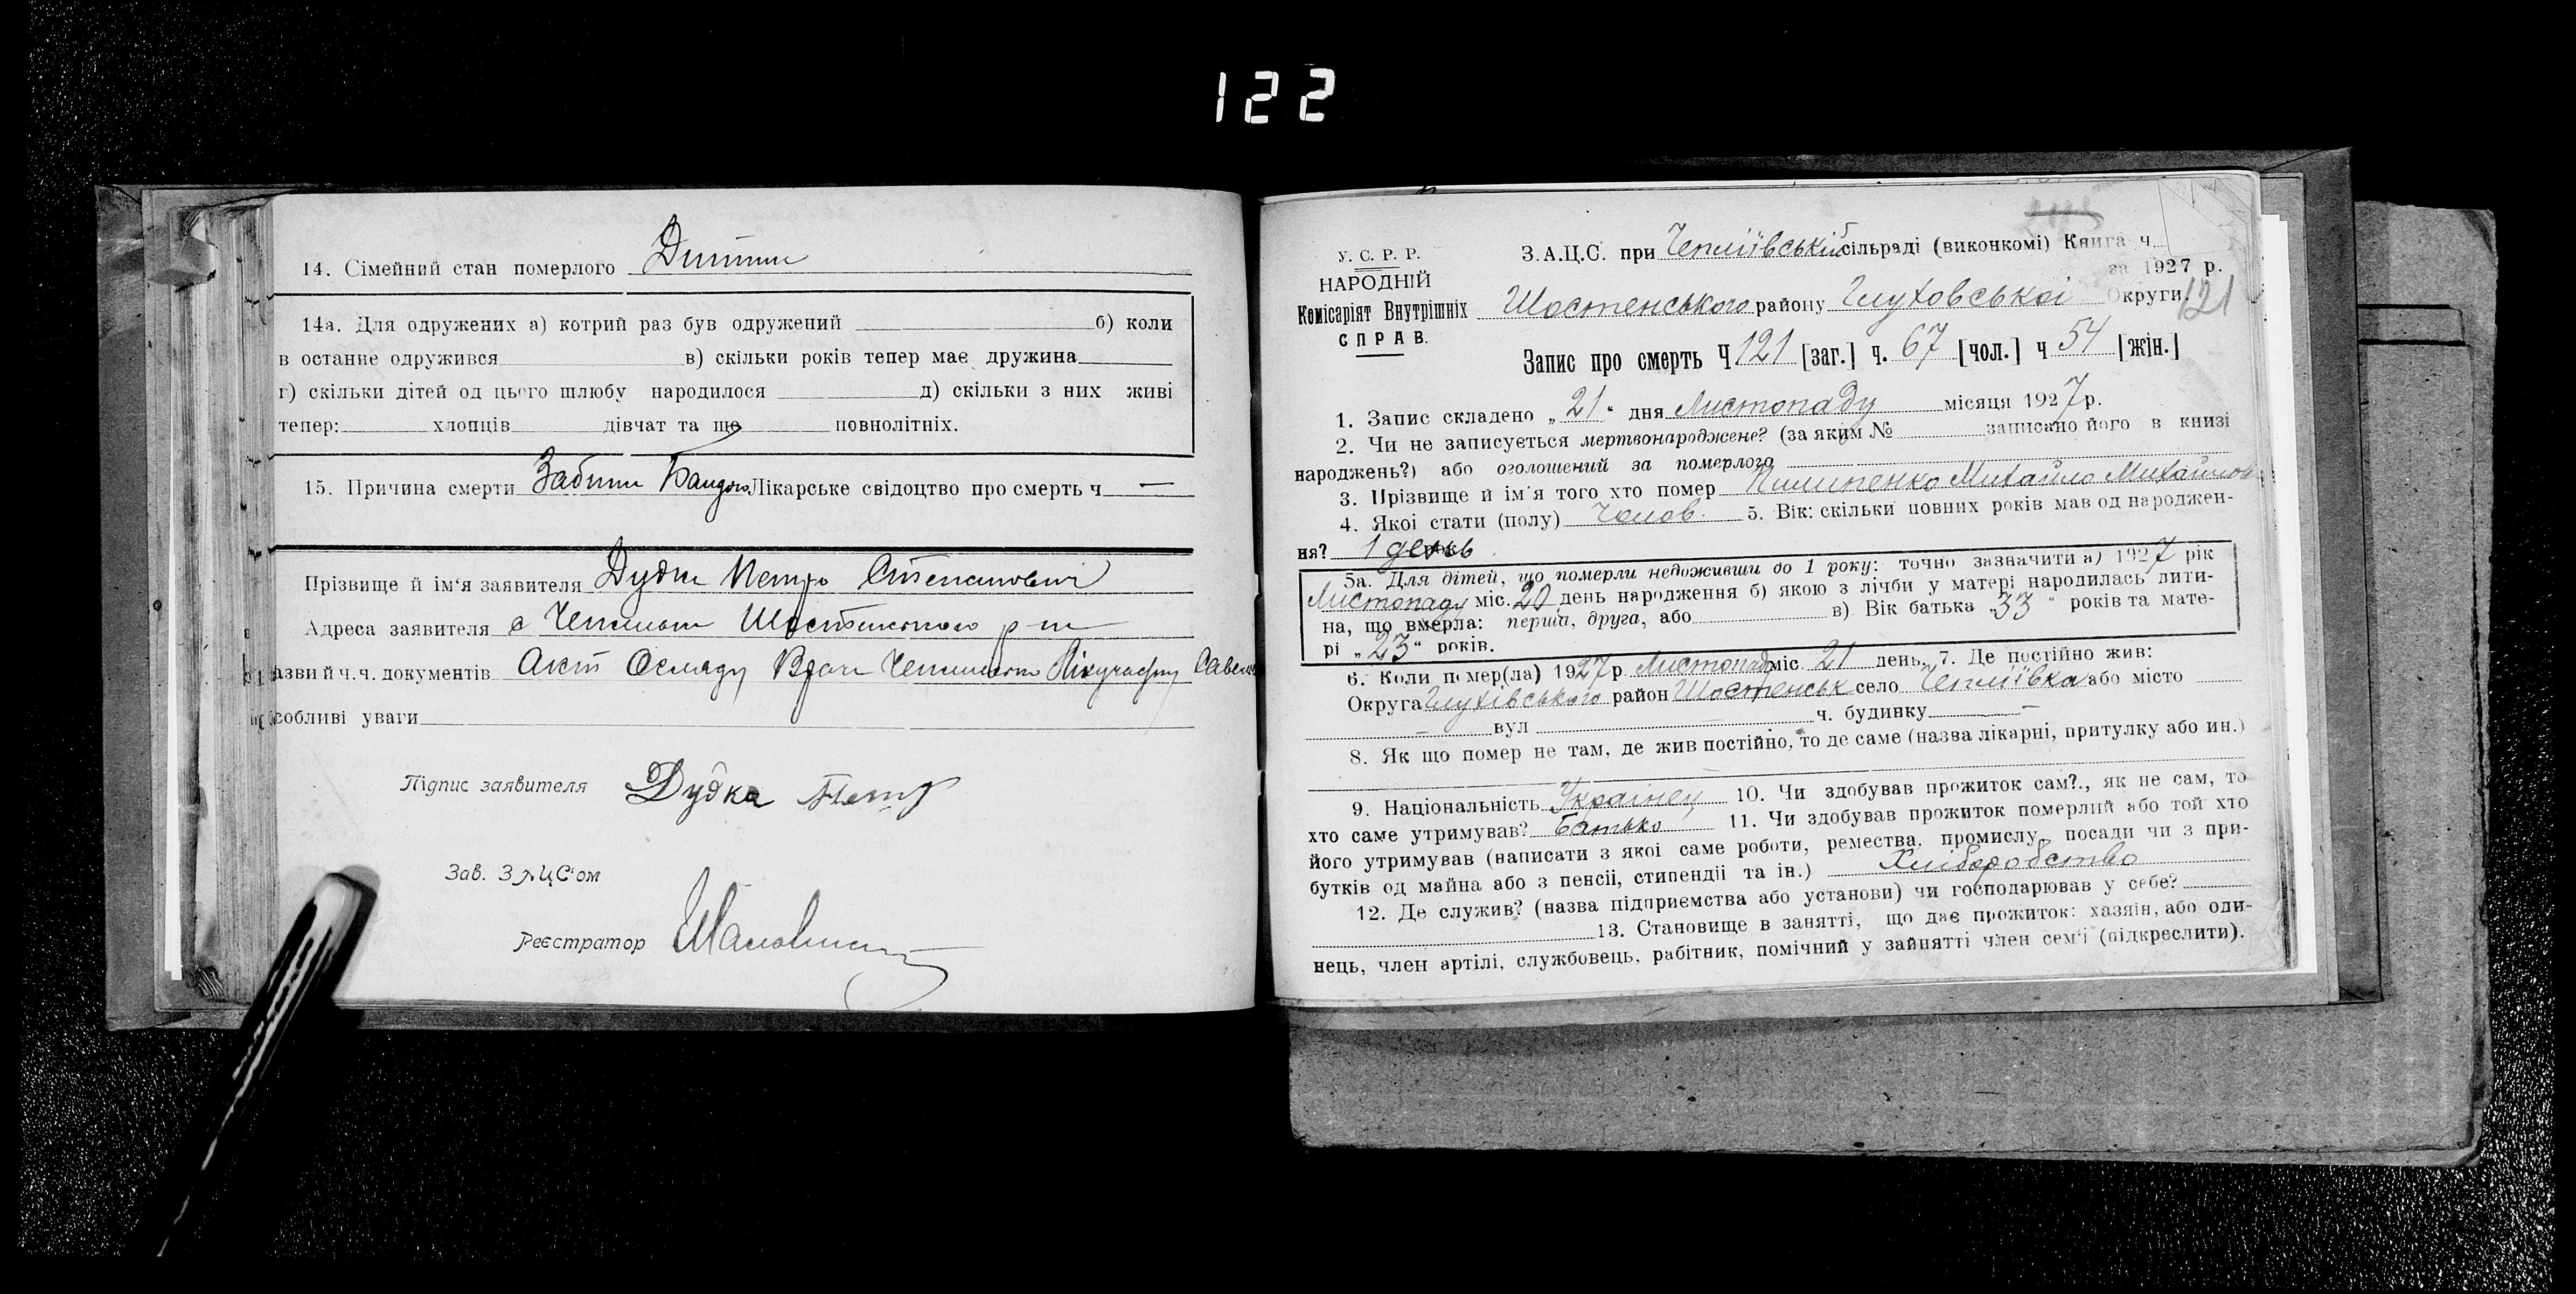 122
14. Сімейний стан померлого
14а. Для одружених а) котрий раз був одружений б) коли
в останнє одружився в) скільки років тепер має дружина
г) скільки дітей од цього шлюбу народилося д) скільки з них живі
тепер: хлопців дівчат та ще повнолітніх.
15. Причина смерти Лікарське свідоцтво про смерть ч —
Прізвище й ім'я заявителя Дудка Петро Степанович
Адреса заявителя с Шостенського р-ну
азви й ч.ч. документів Акт
собливі уваги
Підпис заявителя Дудка Петр
Зав. ЗАЦС'ом
Реєстратор
У. С. Р. Р.
НАРОДНІЙ
Комісаріят Внутрішніх
СПРАВ.
З.А.Ц.С. при Чепліївській сільраді (виконкомі) Книга ч
за 1927 р.
Шостенського району Глуховської Округи.
121
Запис про смерть Ч 121 [заг.] ч. 67 [чол.] ч 54 [жін.]
1. Запис складено „21" дня Листопаду місяця 1927 р.
2. Чи не записується мертвонароджене? (за яким № записано його в книзі
народжень?) або оголошений за померлого
3. Прізвище й ім'я того хто помер Пилипенко Михайло Михайлов
4. Якої стати (полу) Чолов. 5. Вік: скільки повних років мав од народжен-
ня? 1 день
5а. Для дітей, що померли недоживши до 1 року: точно зазначити а) 1927 рік
Листопаду міс. 20 день народження б) якою з лічби у матері народилась дити-
на, що вмерла: перша, друга, або в) Вік батька „33" років та мате-
рі „23" років.
6. Коли помер(ла) 1927 р. Листопад міс. 21 день. 7. Де постійно жив:
Округа Глухівського район Шостенськ село Чепліївка або місто
вул ч. будинку —
8. Як що помер не там, де жив постійно, то де саме (назва лікарні, притулку або ин.)
9. Національність Українец 10. Чи здобував прожиток сам?., як не сам, то
хто саме утримував? Батько 11. Чи здобував прожиток померлий або той хто
його утримував (написати з якої саме роботи, ремества, промислу, посади чи з при-
бутків од майна або з пенсії, стипендії та ін.) Хліборобство
12. Де служив? (назва підприємства або установи) чи господарював у себе?
13. Становище в занятті, що дає прожиток: хазяїн, або оди-
нець, член артілі, службовець, рабітник, помічний у зайнятті член сем'ї (підкреслити).